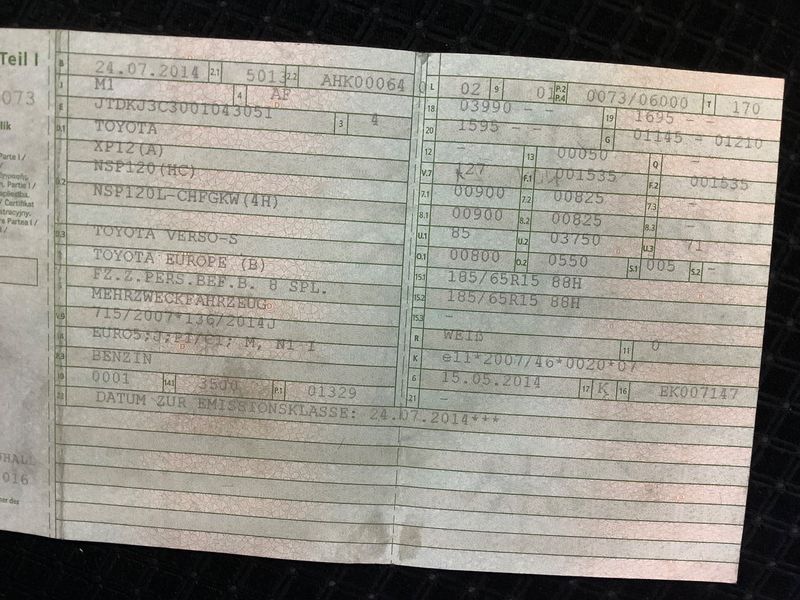 Teil I
B 24.07.2014 2.1 5013 2.2 AHK00064
J M1 4 AF
E JTDKJ3C3001043051 3 4
D.1 TOYOTA
XP12(A)
D.2 NSP120(HC)
NSP120L-CHFGKW(4H)
D.3 TOYOTA VERSO-S
2 TOYOTA EUROPE (B)
5 FZ.Z.PERS.BEF.B. 8 SPL.
MEHRZWECKFAHRZEUG
V.9 715/2007*136/2014J
14 EURO5;J;PI/CI; M, N1 I
P.3 BENZIN
10 0001 14.1 35J0 P.1 01329
22 DATUM ZUR EMISSIONSKLASSE: 24.07.2014***
L 02 9 01 P.2 P.4 0073/06000 T 170
18 03990 - - 19 1695 - -
20 1595 - - G 01145 - 01210
12 - 13 00050 Q -
V.7 127 F.1 001535 F.2 001535
7.1 00900 7.2 00825 7.3 -
8.1 00900 8.2 00825 8.3 -
U.1 85 U.2 03750 U.3 71
O.1 00800 O.2 0550 S.1 005 S.2 -
15.1 185/65R15 88H
15.2 185/65R15 88H
15.3 -
R WEIß 11 0
K e11*2007/46*0020*07
6 15.05.2014 17 K 16 EK007147
21 -
0073
Parte I /
Parte I /
HALL
016